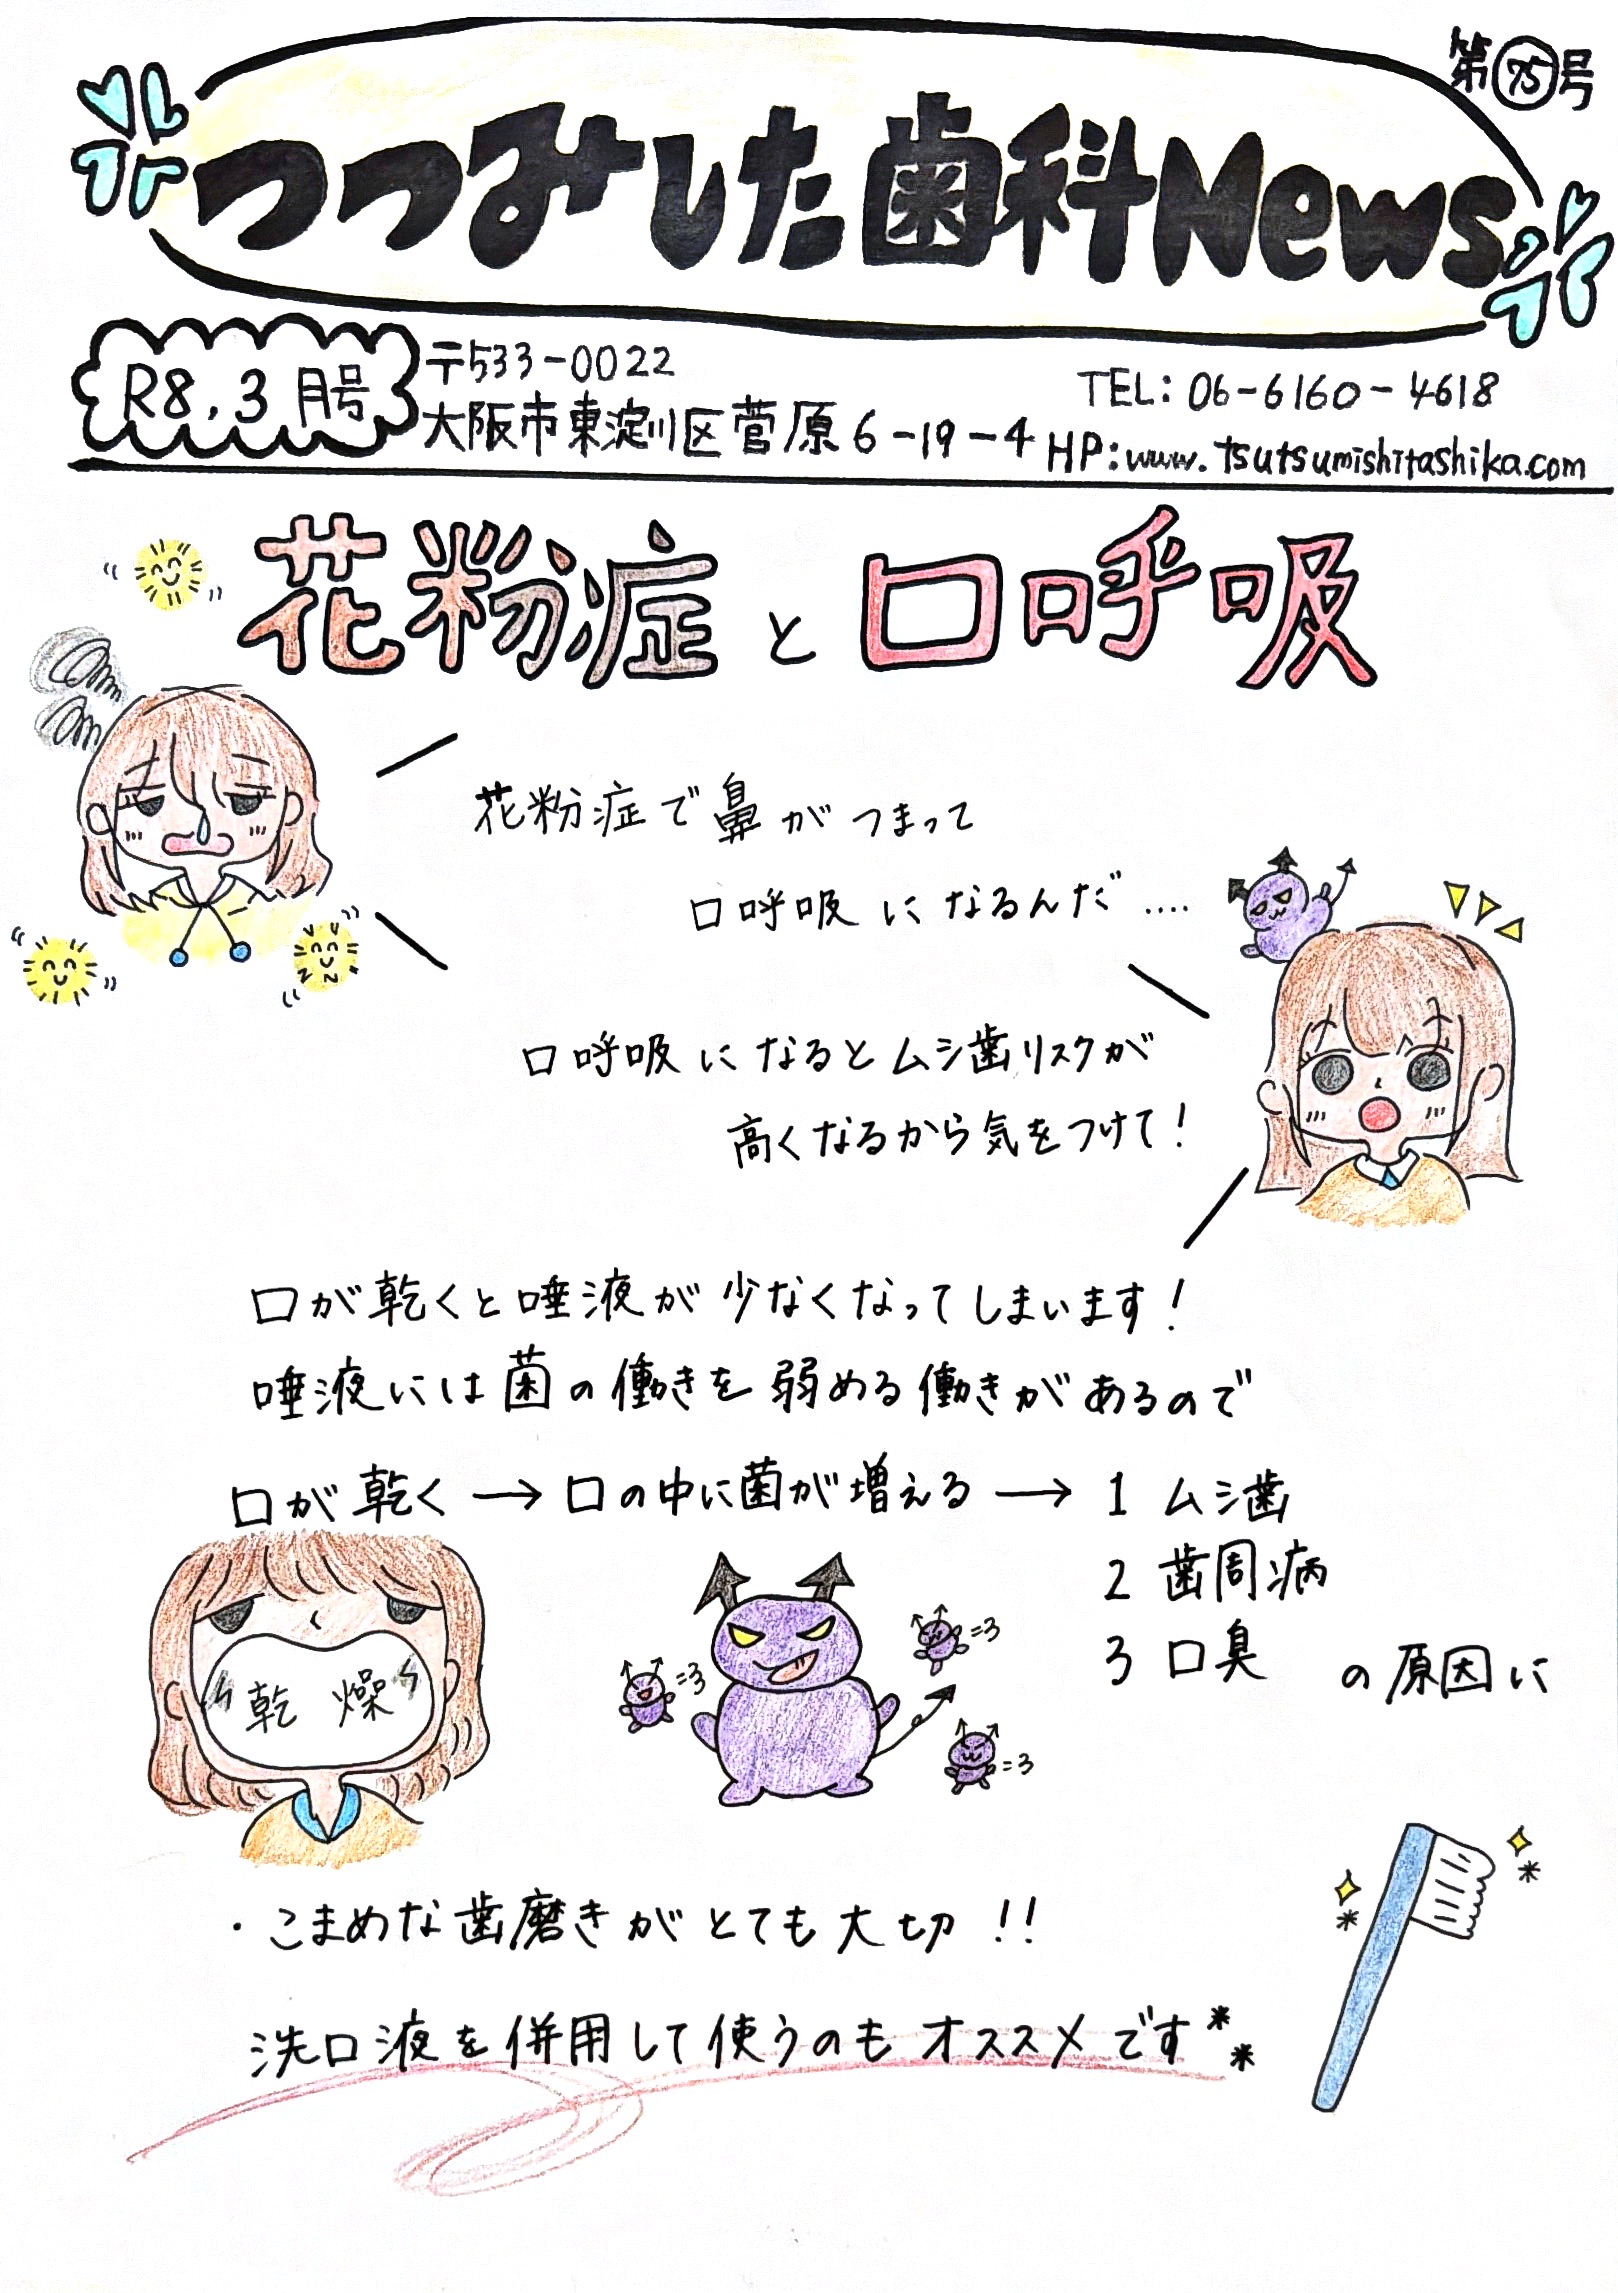 第75号
つつみした歯科News
R8.3月号
〒533-0022
大阪市東淀川区菅原6-19-4
TEL:06-6160-4618
HP:www.tsutsumishitashika.com
花粉症と口呼吸
花粉症で鼻がつまって
口呼吸になるんだ....
口呼吸になるとムシ歯リスクが
高くなるから気をつけて!
口が乾くと唾液が少なくなってしまいます!
唾液には菌の働きを弱める働きがあるので
口が乾く→口の中に菌が増える→1 ムシ歯
2 歯周病
3 口臭 の原因に
乾燥
=3
=3
=3
・こまめな歯磨きがとても大切!!
洗口液を併用して使うのもオススメです**